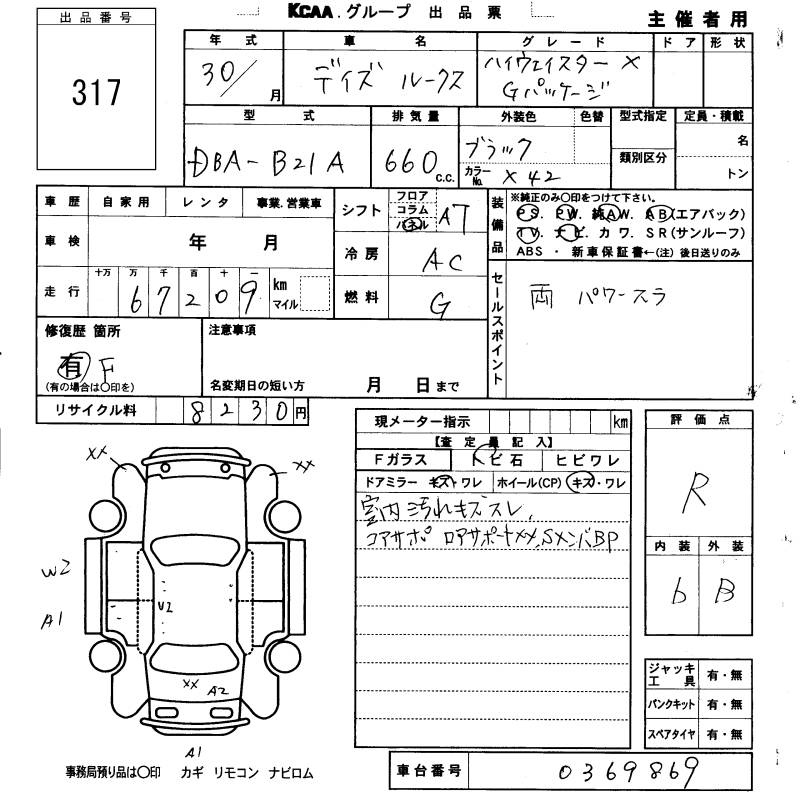 KCAA.グループ 出品票
主催者用
出品番号
317
年式 車名 グレード ドア 形状
30/ 月 デイズ ルークス ハイウェイスター X
Gパッケージ
型式 排気量 外装色 色替 型式指定 定員・積載
DBA-B21A 660 c.c. ブラック 名
カラーNo. X42 類別区分 トン
車歴 自家用 レンタ 事業.営業車
シフト フロア コラム パネル AT
装備品 ※純正のみ〇印をつけて下さい。
PS. PW. 純AW. AB(エアバック)
TV. ナビ. カワ. SR(サンルーフ)
ABS ・ 新車保証書←(注) 後日送りのみ
車検 年 月
冷房 AC
走行 十万 万 千 百 十 一 km マイル
67209
燃料 G
セールスポイント 両 パワースラ
修復歴 箇所 注意事項
有 F
(有の場合は〇印を) 名変期日の短い方 月 日まで
リサイクル料 8230円
現メーター指示 km
評価点
【査定員記入】
Fガラス トビ石 ヒビワレ
ドアミラー キズ・ワレ ホイール(CP) キズ・ワレ
R
室内汚れキズスレ、
コアサポ ロアサポートXX, SメンバBP
内装 外装
b B
XX XX
W2
A1
W2
XX A2
A1
ジャッキ 工具 有・無
パンクキット 有・無
スペアタイヤ 有・無
事務局預り品は〇印 カギ リモコン ナビロム
車台番号 0369869